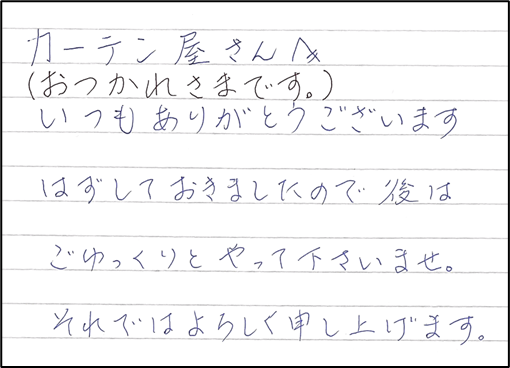 カーテン屋さんへ
(おつかれさまです。)
いつもありがとうございます
はずしておきましたので後は
ごゆっくりとやって下さいませ。
それではよろしく申し上げます。